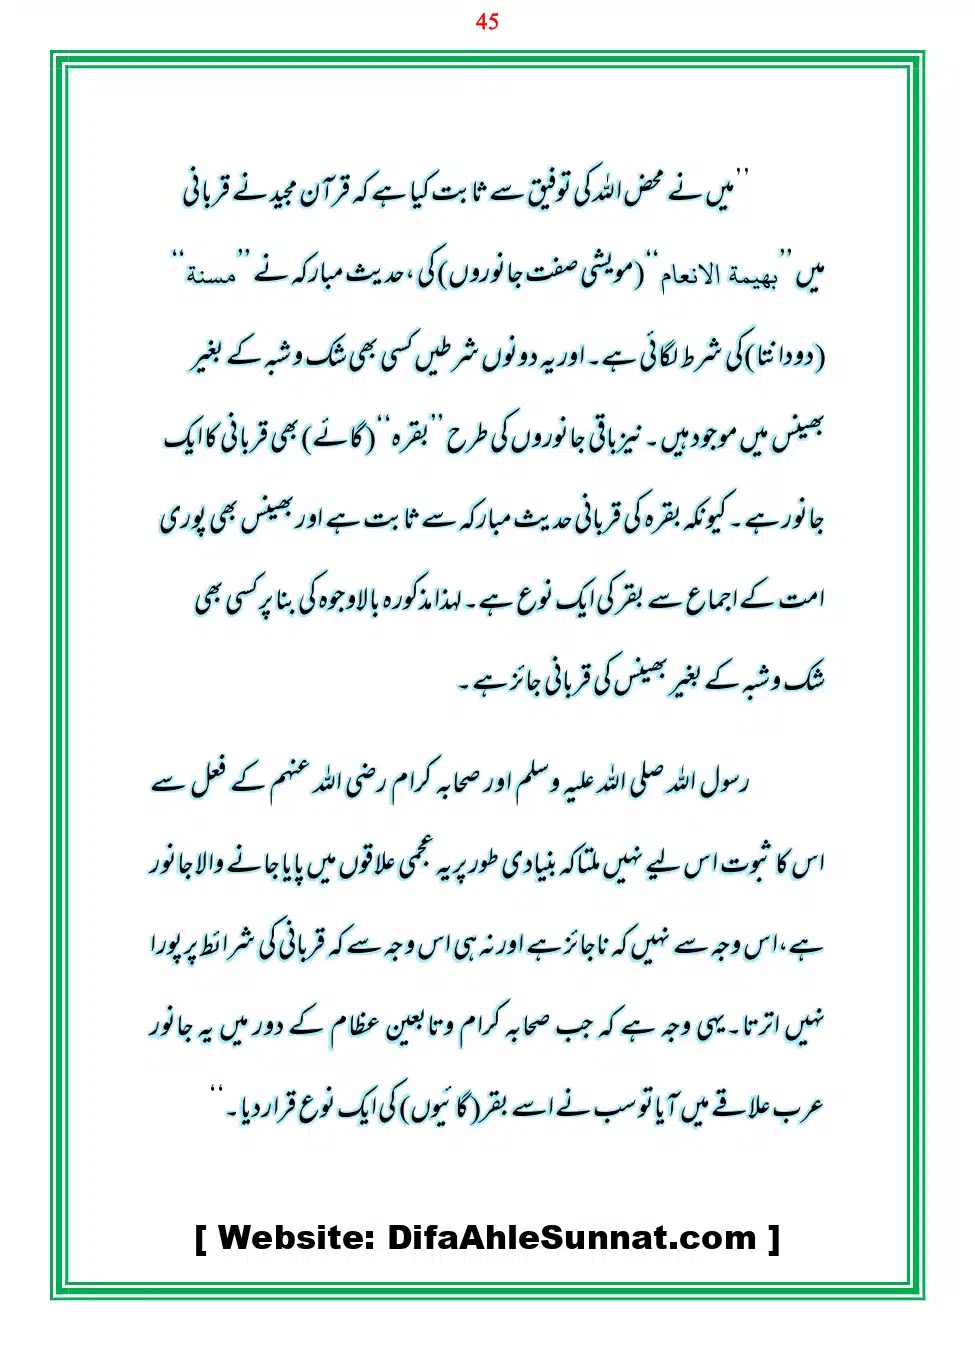 45
’’میں نے محض اللہ کی توفیق سے ثابت کیا ہے کہ قرآن مجید نے قربانی
میں ’’بهيمة الانعام‘‘ (مویشی صفت جانوروں) کی، حدیث مبارکہ نے ’’مسنة‘‘
(دو دانتا) کی شرط لگائی ہے۔ اور یہ دونوں شرطیں کسی بھی شک و شبہ کے بغیر
بھینس میں موجود ہیں۔ نیز باقی جانوروں کی طرح ’’بقرہ‘‘ (گائے) بھی قربانی کا ایک
جانور ہے۔ کیونکہ بقرہ کی قربانی حدیث مبارکہ سے ثابت ہے اور بھینس بھی پوری
امت کے اجماع سے بقر کی ایک نوع ہے۔ لہذا مذکورہ بالا وجوہ کی بنا پر کسی بھی
شک و شبہ کے بغیر بھینس کی قربانی جائز ہے۔
رسول اللہ صلی اللہ علیہ وسلم اور صحابہ کرام رضی اللہ عنہم کے فعل سے
اس کا ثبوت اس لیے نہیں ملتا کہ بنیادی طور پر یہ عجمی علاقوں میں پایا جانے والا جانور
ہے، اس وجہ سے نہیں کہ ناجائز ہے اور نہ ہی اس وجہ سے کہ قربانی کی شرائط پر پورا
نہیں اترتا۔ یہی وجہ ہے کہ جب صحابہ کرام و تابعین عظام کے دور میں یہ جانور
عرب علاقے میں آیا تو سب نے اسے بقر (گائیوں) کی ایک نوع قرار دیا۔‘‘
[ Website: DifaAhleSunnat.com ]